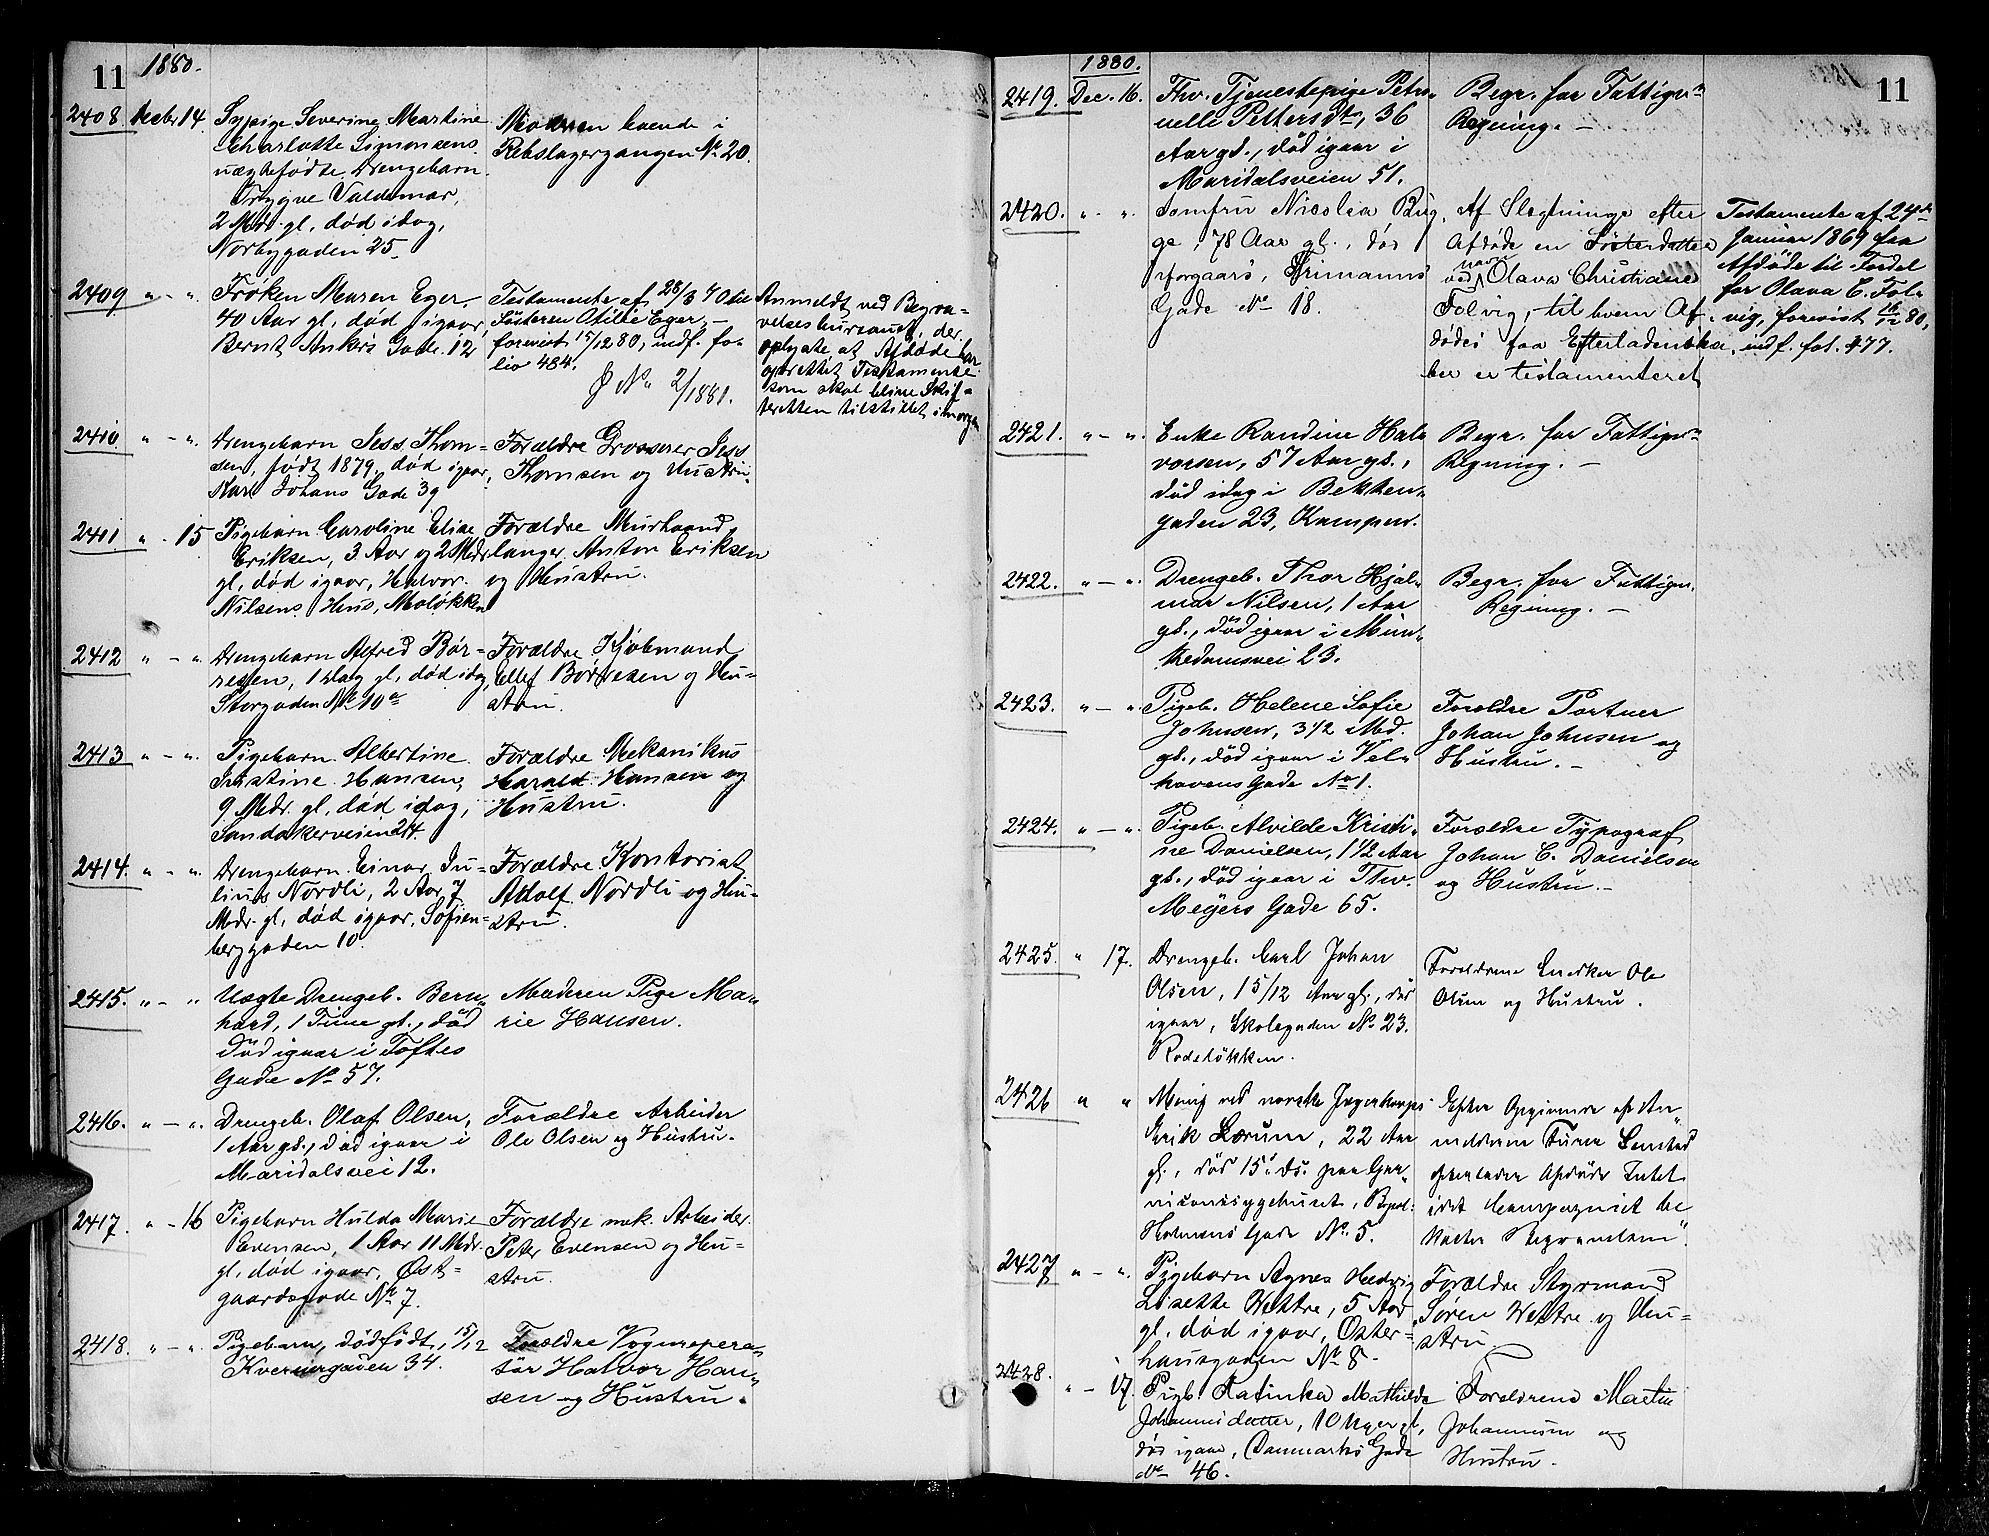 11
1880.
2408 Decbr 14. Sypige Severine Martine
Charlotte Simonsens
uægtefødte Drengebarn
Trygve Valdemar,
2 Mdr. gl, død idag,
Norbygaden 25
Moderen boende i
Rebslagergangen No 20.
2409 " - " Frøken Maren Eger
40 Aar gl, død igaar,
Bernt Ankers Gade 12
Testamente af 28/3 70 til
Søsteren Otilie Eger, –
forevist 15/12 80, indf. fo-
lio 484.
J No 2/1881.
Anmeldt ved Begra-
velsesbureauet, der
oplyste, at Afdøde har
oprettet Testamente
som skal blive Skif-
teretten tilstillet imorgen
2410 " - " Drengebarn Jess Thom-
sen, født 1879, død igaar,
Karl Johans Gade 39
Forældre Grosserer Jess
Thomsen og Hustru.
2411 " - 15 Pigebarn Caroline Elise
Eriksen, 3 Aar og 2 Mdr
gl, død igaar, Halvor
Nilsens Hus, Moløkken
Forældre Murhaand-
langer Anton Eriksen
og Hustru.
2412 " - " Drengebarn Alfred Bør-
resen, 1 Dag gl, død idag,
Storgaden No 10a
Forældre Kjøbmand
Ellef Børresen og Hu-
stru.
2413 " - " Pigebarn Albertine
Kristine Hansen,
9 Mdr. gl, død idag,
Sandakerveien 24.
Forældre Mekanikus
Harald Hansen og
Hustru.
2414. " - " Drengebarn Einar Ju-
lius Nordli, 2 Aar 7
Mdr. gl, død igaar, Sofien-
berggaden 10
Forældre Kontorist
Adolf Nordli og Hu-
stru.
2415. " - " Uægte Drengeb. Bern-
hard, 1 Time gl., død
død igaar i Toftes
Gade No 57.
Moderen Pige Ma-
rie Hansen.
2416. " - " Drengeb. Olaf Olsen,
1 Aar gl., død igaar i
Maridalsvei 12.
Forældre Arbeider
Ole Olsen og Hustru.
2417. " - 16 Pigebarn Hulda Marie
Evensen, 1 Aar 11 Mdr.
gl, død igaar, Øst-
gaardsgade No 7.
Forældre mek. Arbeider
Peter Evensen og Hu-
stru.
2418. " - " Pigebarn, dødfødt, 15/12
Kvernergaden 34.
Forældre Vognrepera-
tør Halvor Han-
sen og Hustru.
11
1880.
2419. Dec. 16. Fhv. Tjenestepige Petro-
nelle Pettersdt, 36
Aar gl., død igaar i
Maridalsveien 51.
Begr. for Fattigv.
Regning. –
2420. " " Jomfru Nicolea Bug-
ge, 78 Aar gl., død
iforgaars, Grimanns
Gade No 18.
Af Slegtninge efter
Afdøde en Søsterdatter
ved navn Olava Christiane
Folvig, til hvem Af-
dødes paa Efterladenska-
ber er testamenteret
Testamente af 24de
Januar 1869 fra
Afdøde til Fordel
for Olava C. Fol-
vig, forevist 16/12 80,
indf. fol. 477.
2421. " - " Enke Randine Hal-
vorsen, 57 Aar gl.,
død idag i Bekken-
gaden 23, Kampen.
Begr. for Fattigv.
Regning. –
2422. " - " Drengeb. Thor Hjal-
mar Nilsen, 1 Aar
gl., død igaar i Mun-
kedamsvei 23.
Begr. for Fattigv.
Regning. –
2423. " - " Pigeb. Helene Sofie
Johnsen, 3 1/2 Md.
gl., død igaar i Vel-
havens Gade No 1.
Foreldre Portner
Johan Johnsen og
Hustru. –
2424. " - " Pigeb. Alvilde Kristi-
ne Danielsen, 1 1/2 Aar
gl., død igaar i Thv.
Meyers Gade 65.
Foreldre Typograf
Johan C. Danielsen
og Hustru. –
2425. " 17. Drengeb. Carl Johan
Olsen, 1 5/12 Aar gl., død
igaar, Skolegaden No 23.
Rodeløkken.
Foreldrene Snedker Ole
Olsen og Hustru.
2426 " " Menig ved norske Jægerkorps
Erik Lærum, 22 Aar
gl., død 15' ds. paa Gar-
nisonssygehuset,
Holmens Gade No 5.
Efter Opgivende af An-
melderen
efterlader Afdøde Intet
idet Compagniet be-
koster Begravelsen".
2427 " - " Pigebarn Agnes Hedvig
Lisette Wettre, 5 Aar
gl. død igaar, Oster-
hausgaden No 8. –
Forældre Styrmand
Søren Wettre og Hu-
stru
2428. " - 17. Pigb Katinka Mathilde
Johannesdatter, 10 Uger gl,
død igaar, Danmarks Gade
No 46.
Foreldrene Martin
Johannesen og
Hustru.